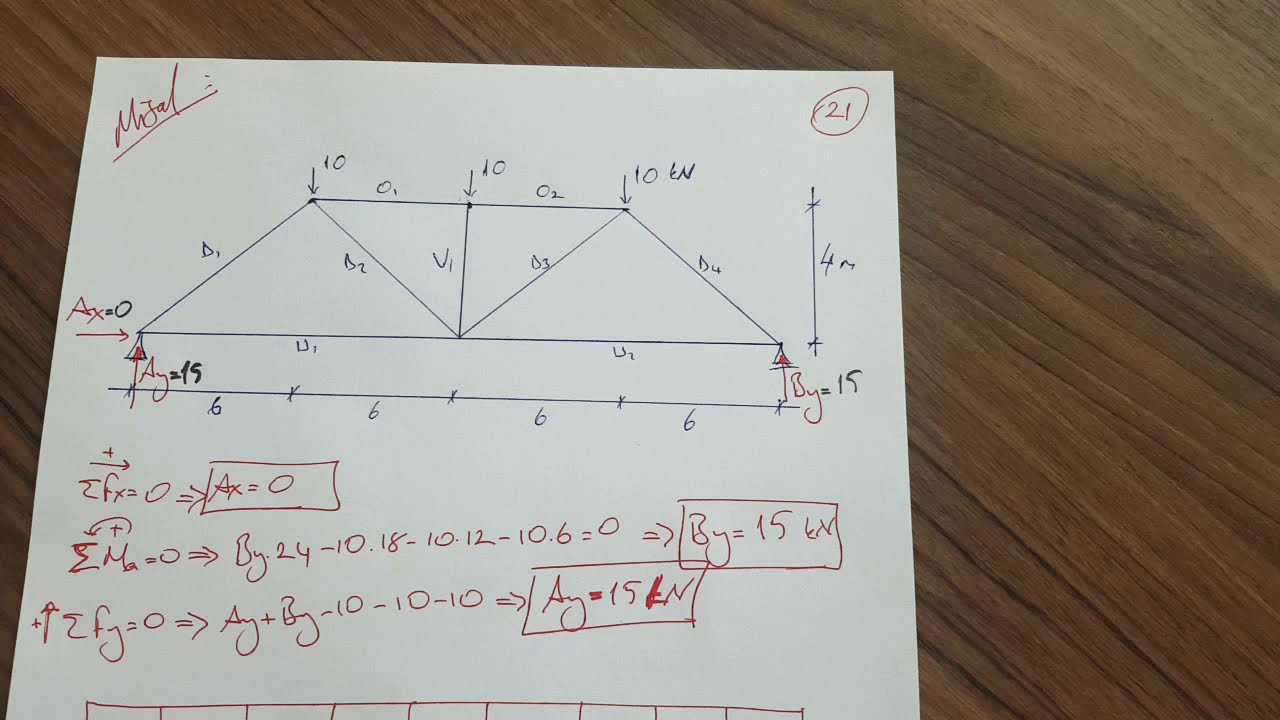 Misal:
21
10
10
10 kN
O₁
O₂
D₁
D₂
V₁
D₃
D₄
4m
Ax=0
U₁
U₂
Ay=15
By=15
6
6
6
6
+
Σfx=0 ⇒ Ax=0
(+)
ΣMa=0 ⇒ By.24-10.18-10.12-10.6=0 ⇒ By=15 kN
+↑Σfy=0 ⇒ Ay+By-10-10-10 ⇒ Ay=15 kN